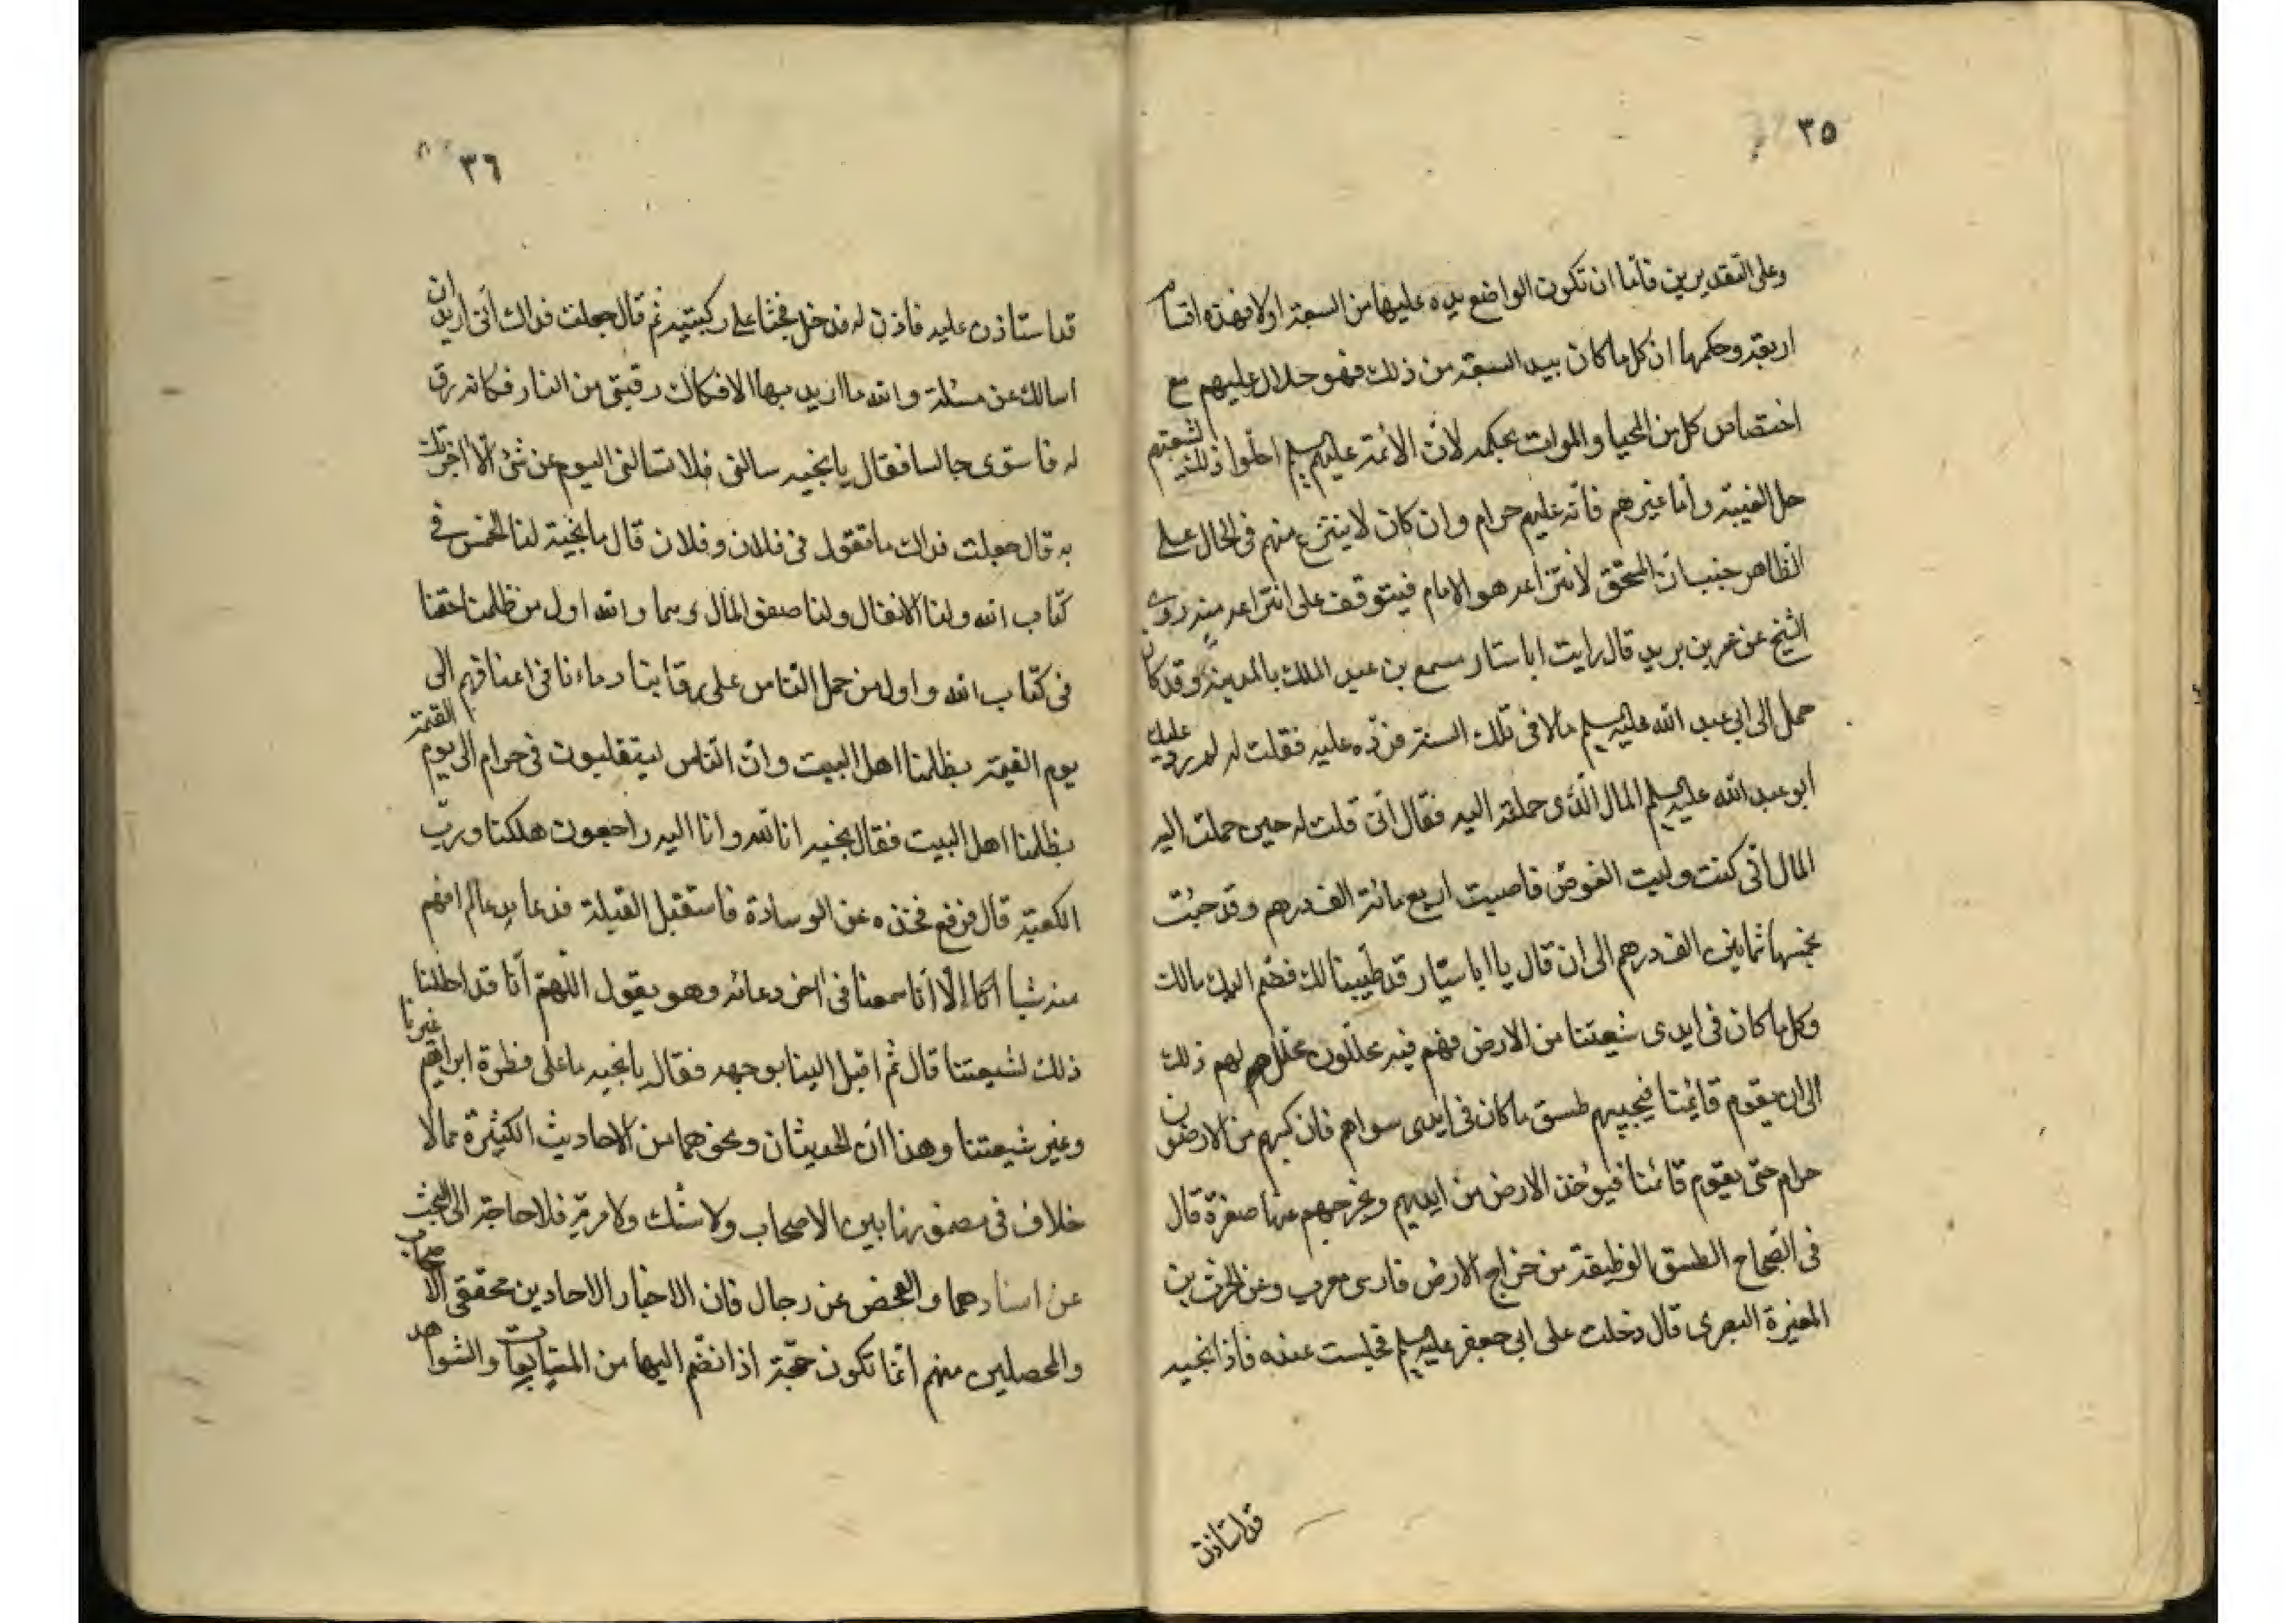 ٣٥
وعلى التقديرين فامّا ان تكون الواضع يده عليها من الشيعة اولا فهذه اقسام
اربعة وحكمها ان كل ما كان بيد الشيعة من ذلك فهو حلال عليهم مع
اختصاص كل من المحيا والموات بحكمه لانّ الأئمة عليهم السلم احلّوا ذلك لشيعتهم
حال الغيبة وأما غيرهم فانّه عليهم حرام وان كان لا ينتزع منهم فى الحال على
الظاهر المحقق لانتزاعه هو الامام فيتوقف على انتزاعه منه روى
الشيخ عن عمر بن يزيد قال رايت ابا سيار مسمع بن عبد الملك بالمدينة وقد كان
حمل الى ابى عبد الله عليه السلم مالا فى تلك السنة فردّه عليه فقلت له لم ردّ عليك
ابو عبد الله عليه السلم المال الّذى حملته اليه فقال انّى قلت له حين حملت اليه
المال انّى كنت وليت الغوص فاصبت اربع مائة الف درهم وقد جئت
بخمسها ثمانين الف درهم الى ان قال يا ابا سيّار قد طيّبناه لك فضم اليك مالك
وكل ما كان فى ايدى شيعتنا من الارض فهم فيه محلّلون محلل لهم ذلك
الى ان يقوم قائمنا فيجبيهم طسق ما كان فى ايدى سواهم فان كسبهم من الارض
حرام حتى يقوم قائمنا فيؤخذ الارض من ايديهم ويخرجهم عنها صغرة قال
فى الصّحاح الطسق الوظيفة من خراج الارض فارسى معرب وعن الحرث بن
المغيرة البصرى قال دخلت على ابى جعفر عليه السلم فجلست عنده فاذا نجيه
قد استاذن
٣٦
قد استاذن عليه فاذن له فدخل فجثا على ركبتيه ثم قال جعلت فداك انّى اريد ان
اسالك عن مسئلة والله ما اريد بها الا فكاك رقبتى من النار فكانه رق
له فاستوى جالسا فقال يا نجيه سالنى فلا تسالنى اليوم عن شئ الّا اخبرتك
به قال جعلت فداك ما تقول فى فلان وفلان قال يا نجية لنا الخمس فى
كتاب الله ولنا الانفال ولنا صفو المال وهما والله اول من ظلمنا حقنا
فى كتاب الله واول من حمل الناس على رقابنا ودماءنا فى اعناقهم الى
يوم القيمة بظلمنا اهل البيت وانّ النّاس ليتقلبون فى حرام الى يوم القيمة
بظلمنا اهل البيت فقال نجيه انا لله وانا اليه راجعون هلكنا وربّ
الكعبة قال فرفع فخذه عن الوسادة فاستقبل القبلة فدعا بدعا لم افهم
منه شيا الّا انّا سمعنا فى اخر دعائه وهو يقول اللّهمّ انّا قد احللنا
ذلك لشيعتنا قال ثم اقبل الينا بوجهه فقال يا نجيه ما على فطرة ابراهيم غيرنا
وغير شيعتنا وهذا ان الحديثان ونحوهما من الاحاديث الكثيرة مما لا
خلاف فى مضمونها بين الاصحاب ولا شك ولا مرية فلا حاجة الى البحث
عن اسنادهما والفحص عن رجال فان الاخبار الاحاد بين محققى الاصحاب
والمحصلين منهم انّما تكون حجّة اذا انضم اليها من المتابعات والشواهد